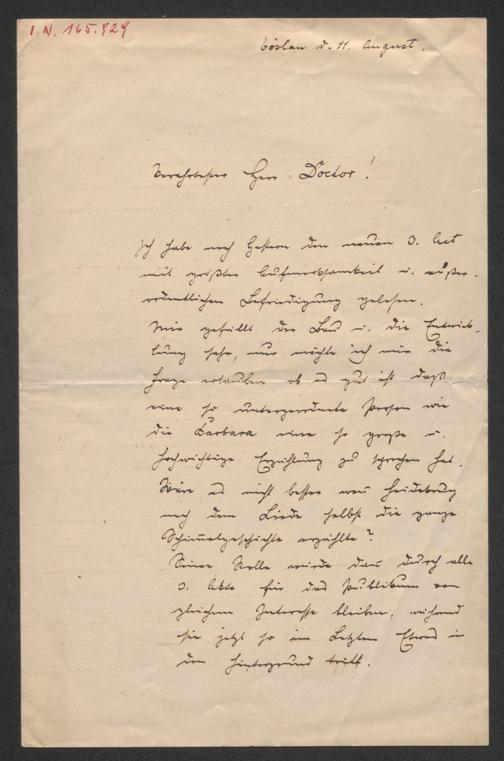 I.N. 165.929
Vöslau d. 11. August.
Verehrtester Herr Doctor!
Ich habe noch gestern den neuen 3. Act
mit größter Aufmerksamkeit u. außer-
ordentlichen Befriedigung gelesen.
Mir gefällt der Bau u. die Entwick-
lung sehr, nur möchte ich mir die
Frage erlauben ob es gut ist daß
eine so untergeordnete Person wie
die Barbara eine so große u.
hochwichtige Erzählung zu sprechen hat.
Wäre es nicht besser wenn
nach dem Liede selbst die ganze
Schimmelgeschichte erzählte?
Seine Rolle würde dann durch alle
3. Akte für das Publikum von
gleichem Interesse bleiben, während
sie jetzt so im Letzten Etwas in
den Hintergrund tritt.